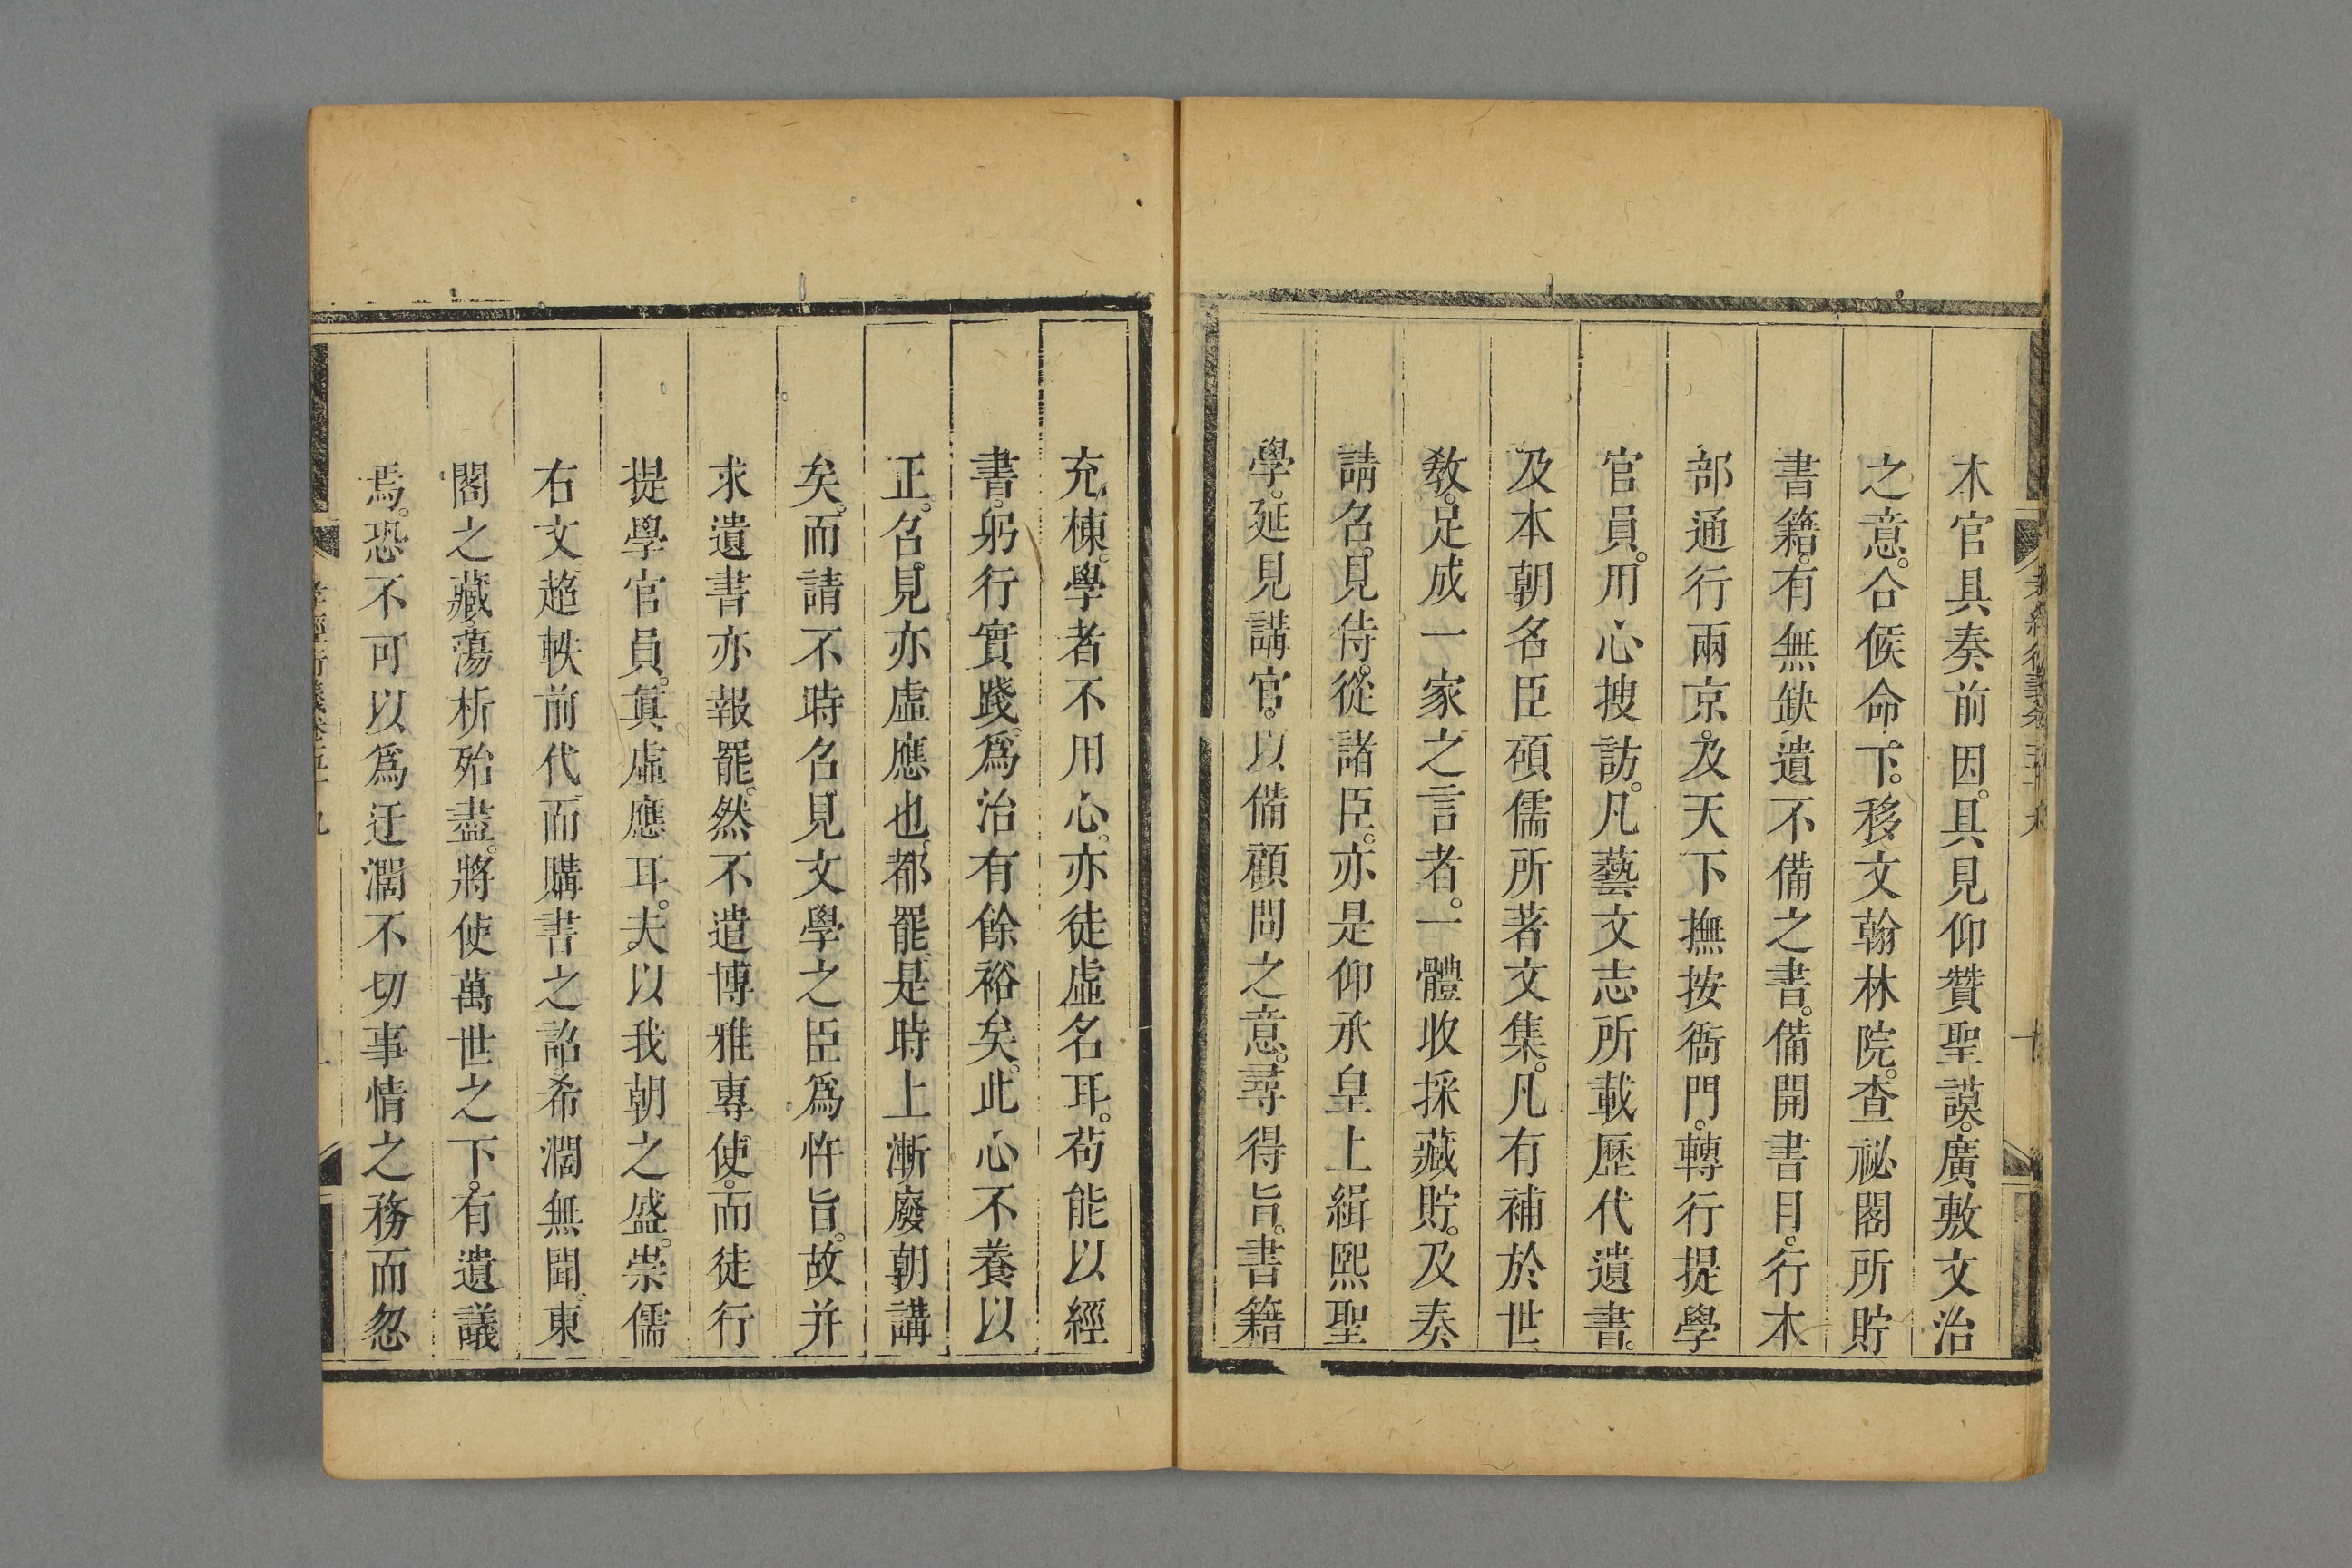 木官具奏前因。具見仰贊聖謨。廣敷文治
之意。合候命下。移文翰林院。查祕閣所貯
書籍。有無缺遺不備之書。備開書目。行木
部通行兩京。及天下撫按衙門。轉行提學
官員。用心搜訪。凡藝文志所載歷代遺書。
及本朝名臣碩儒所著文集。凡有補於世
敎。足成一家之言者。一體收採藏貯。及奏
請召。見侍。從諸臣。亦是仰承皇上緝熙聖
學。延見講官。以備顧問之意。尋得旨。書籍
充棟。學者不用心。亦徒虛名耳。苟能以經
書。躬行實踐。爲治有餘裕矣。此心不養以
正。召。見亦虛應也。都罷。是時上漸廢朝講
矣。而請不時召見文學之臣爲忤旨。故并
求遺書亦報罷。然不遣博雅專使。而徒行
提學官員。眞虛應耳。夫以我朝之盛。崇儒
右文。趨軼前代。而購書之詔。希濶無聞。東
閣之藏。蕩析殆盡。將使萬世之下。有遺議
焉。恐不可以爲迂濶不切事情之務而忽
孝經衍義卷五十九
十